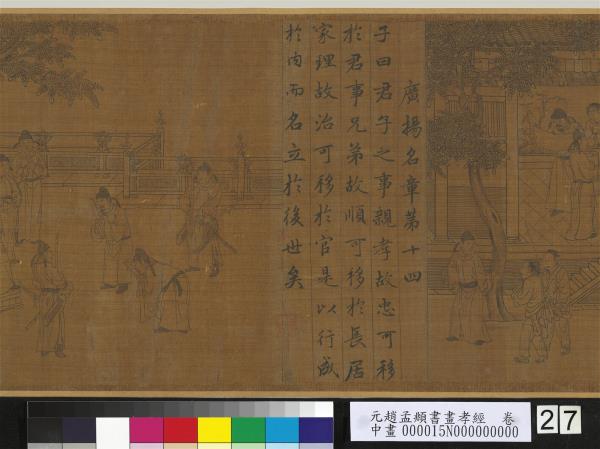 廣揚名章第十四
子曰君子之事親孝故忠可移
於君事兄弟故順可移於長居
家理故治可移於官是以行成
於內而名立於後世矣
元趙孟頫書畫孝經 卷
中畫000015N000000000
27